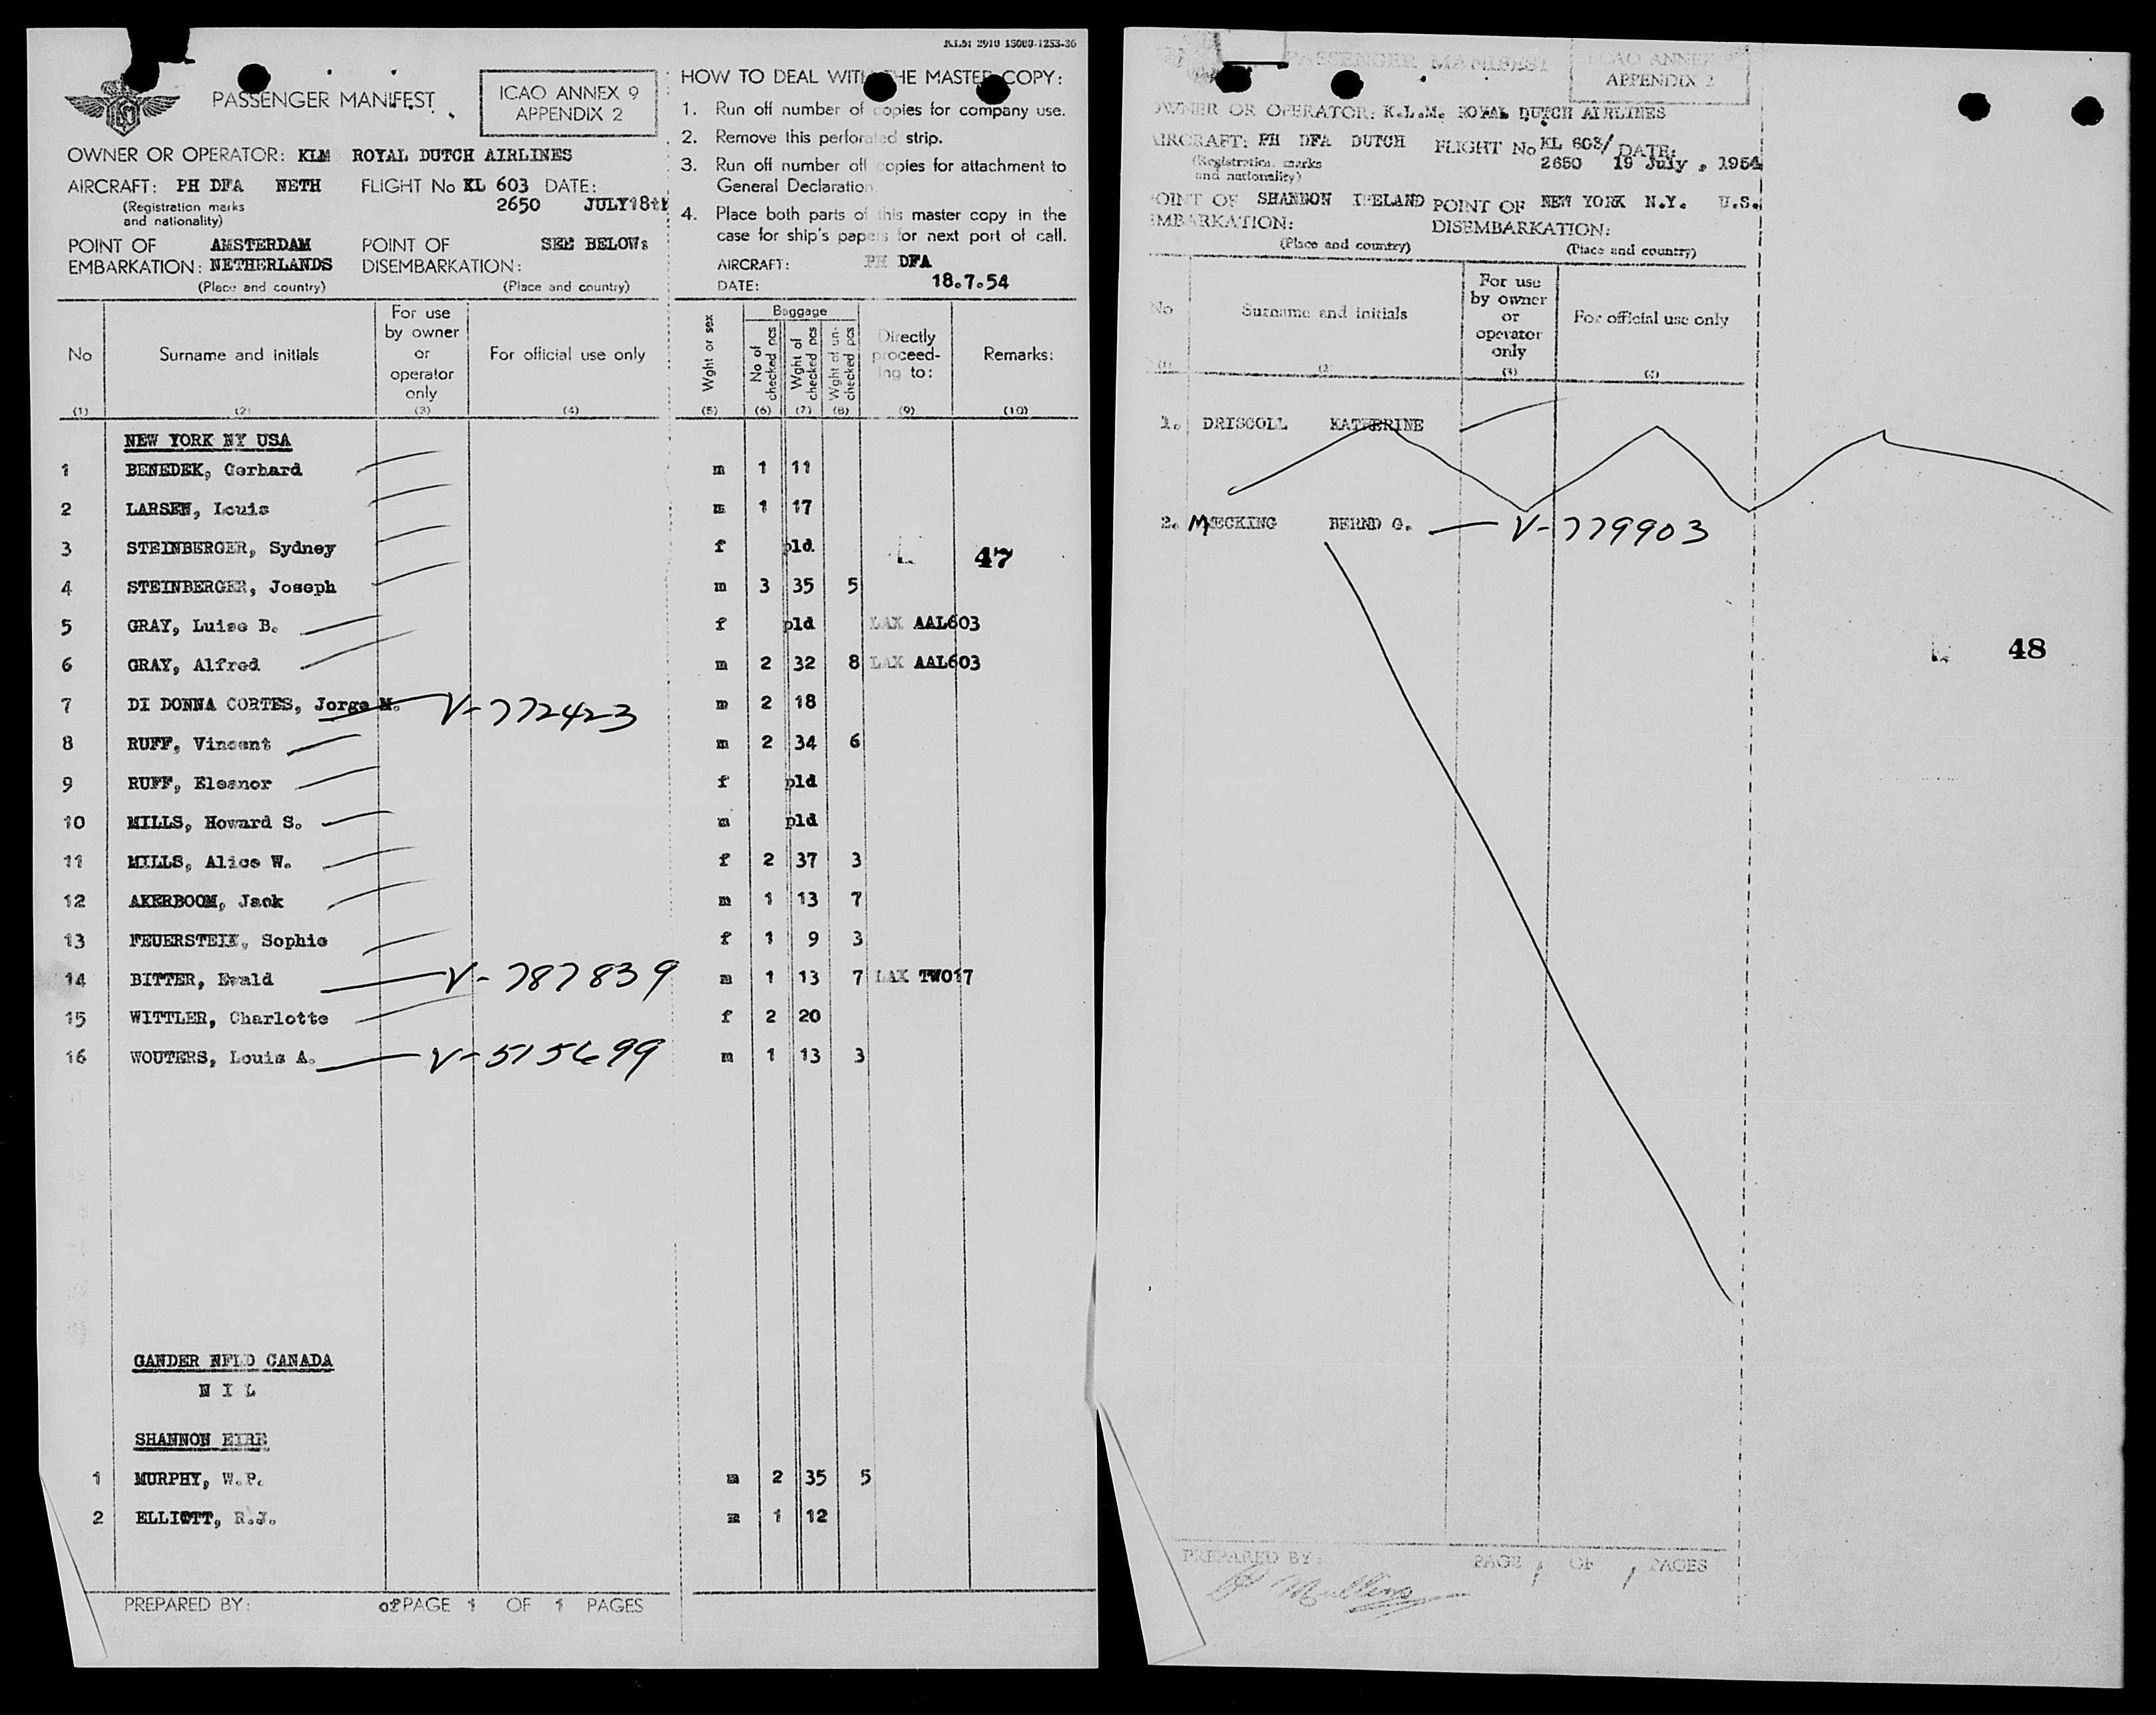 KLM 2910 15000-1253-36
PASSENGER MANIFEST
ICAO ANNEX 9
APPENDIX 2
OWNER OR OPERATOR: KLM ROYAL DUTCH AIRLINES
AIRCRAFT: PH DFA NETH FLIGHT No KL 603 DATE:
(Registration marks 2650 JULY18th
and nationality)
POINT OF AMSTERDAM POINT OF SEE BELOW:
EMBARKATION: NETHERLANDS DISEMBARKATION:
(Place and country) (Place and country)
HOW TO DEAL WITH THE MASTER COPY:
1. Run off number of copies for company use.
2. Remove this perforated strip.
3. Run off number off copies for attachment to
General Declaration
4. Place both parts of this master copy in the
case for ship's papers for next port of call.
AIRCRAFT: PH DFA
DATE: 18.7.54
No Surname and initials For use by owner or operator only For official use only Wght or sex Baggage No of checked pcs Wght of checked pcs Wght of un-checked pcs Directly proceed-ing to: Remarks:
(1) (2) (3) (4) (5) (6) (7) (8) (9) (10)
NEW YORK NY USA
1 BENEDEK, Gerhard m 1 11
2 LARSEN, Louis m 1 17
3 STEINBERGER, Sydney f pld
47
4 STEINBERGER, Joseph m 3 35 5
5 GRAY, Luise B. f pld LAX AAL603
6 GRAY, Alfred m 2 32 8 LAX AAL603
7 DI DONNA CORTES, Jorge M. V-772423 m 2 18
8 RUFF, Vincent m 2 34 6
9 RUFF, Eleanor f pld
10 MILLS, Howard S. m pld
11 MILLS, Alice W. f 2 37 3
12 AKERBOOM, Jack m 1 13 7
13 FEUERSTEIN, Sophie f 1 9 3
14 BITTER, Ewald V-787839 m 1 13 7 LAX TWO17
15 WITTLER, Charlotte f 2 20
16 WOUTERS, Louis A. V-515699 m 1 13 3
GANDER NFLD CANADA
N I L
SHANNON EIRE
1 MURPHY, W.P. m 2 35 5
2 ELLIOTT, R.J. m 1 12
PREPARED BY: PAGE 1 OF 1 PAGES
PASSENGER MANIFEST
ICAO ANNEX 9
APPENDIX 2
OWNER OR OPERATOR: K.L.M. ROYAL DUTCH AIRLINES
AIRCRAFT: PH DFA DUTCH FLIGHT No KL 603/ DATE:
(Registration marks 2650 19 July, 1954
and nationality)
POINT OF SHANNON IRELAND POINT OF NEW YORK N.Y. U.S.
EMBARKATION: DISEMBARKATION:
(Place and country) (Place and country)
No Surname and initials For use by owner or operator only For official use only
(1) (2) (3) (4)
1. DRISCOLL KATHERINE
2. MECKING BERND G. V-779903
48
PREPARED BY: PAGE 1 OF 1 PAGES